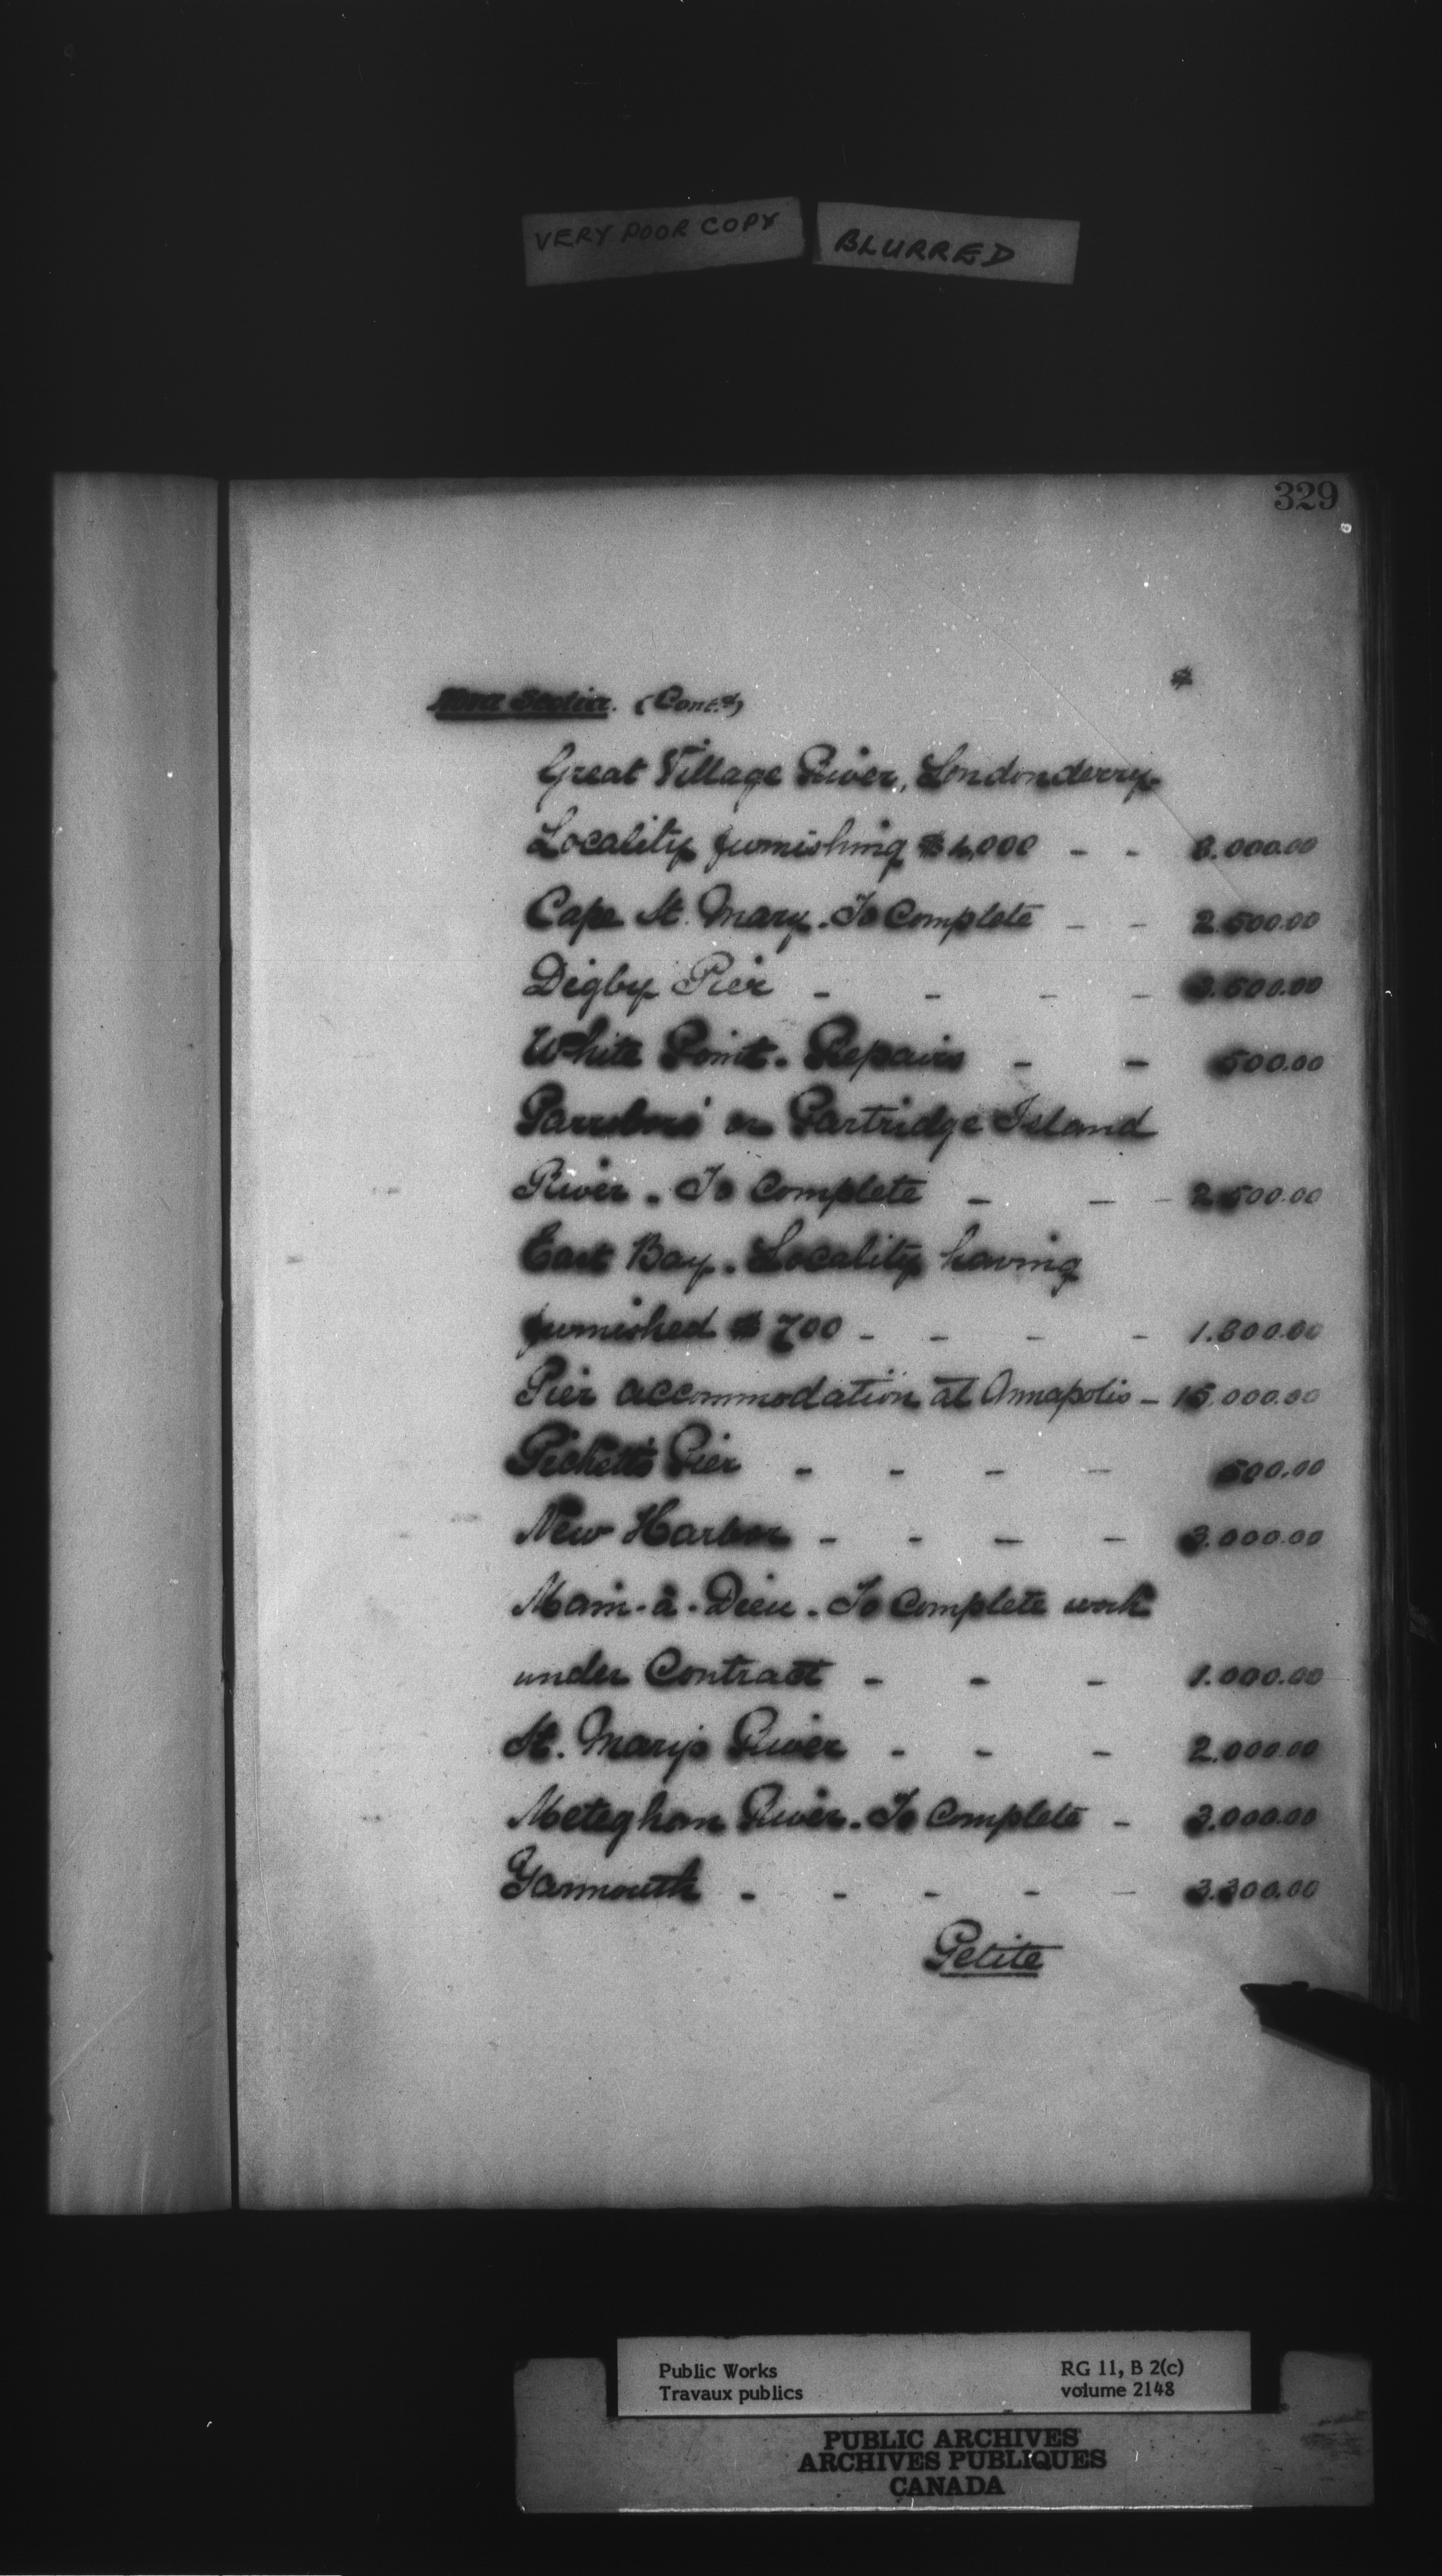 VERY POOR COPY BLURRED
329
$
Nova Scotia. (Cont.d)
Great Village River, Londonderry
Locality furnishing $4,000 - - 8.000.00
Cape St. Mary. To Complete - - 2.500.00
Digby Pier - - - - 3.500.00
White Point. Repairs - - 500.00
Parrsboro' or Partridge Island
River. To Complete - - - 2.500.00
East Bay. Locality having
furnished $700 - - - - 1.800.00
Pier accommodation at Annapolis - 15.000.00
Pickett's Pier - - - - 500.00
New Harbor - - - - 3.000.00
Main-à-Dieu. To Complete work
under Contract - - - 1.000.00
St. Mary's River - - - 2.000.00
Meteghan River. To Complete - 3.000.00
Yarmouth - - - - - 3.300.00
Petite
Public Works RG 11, B 2(c)
Travaux publics volume 2148
PUBLIC ARCHIVES
ARCHIVES PUBLIQUES
CANADA